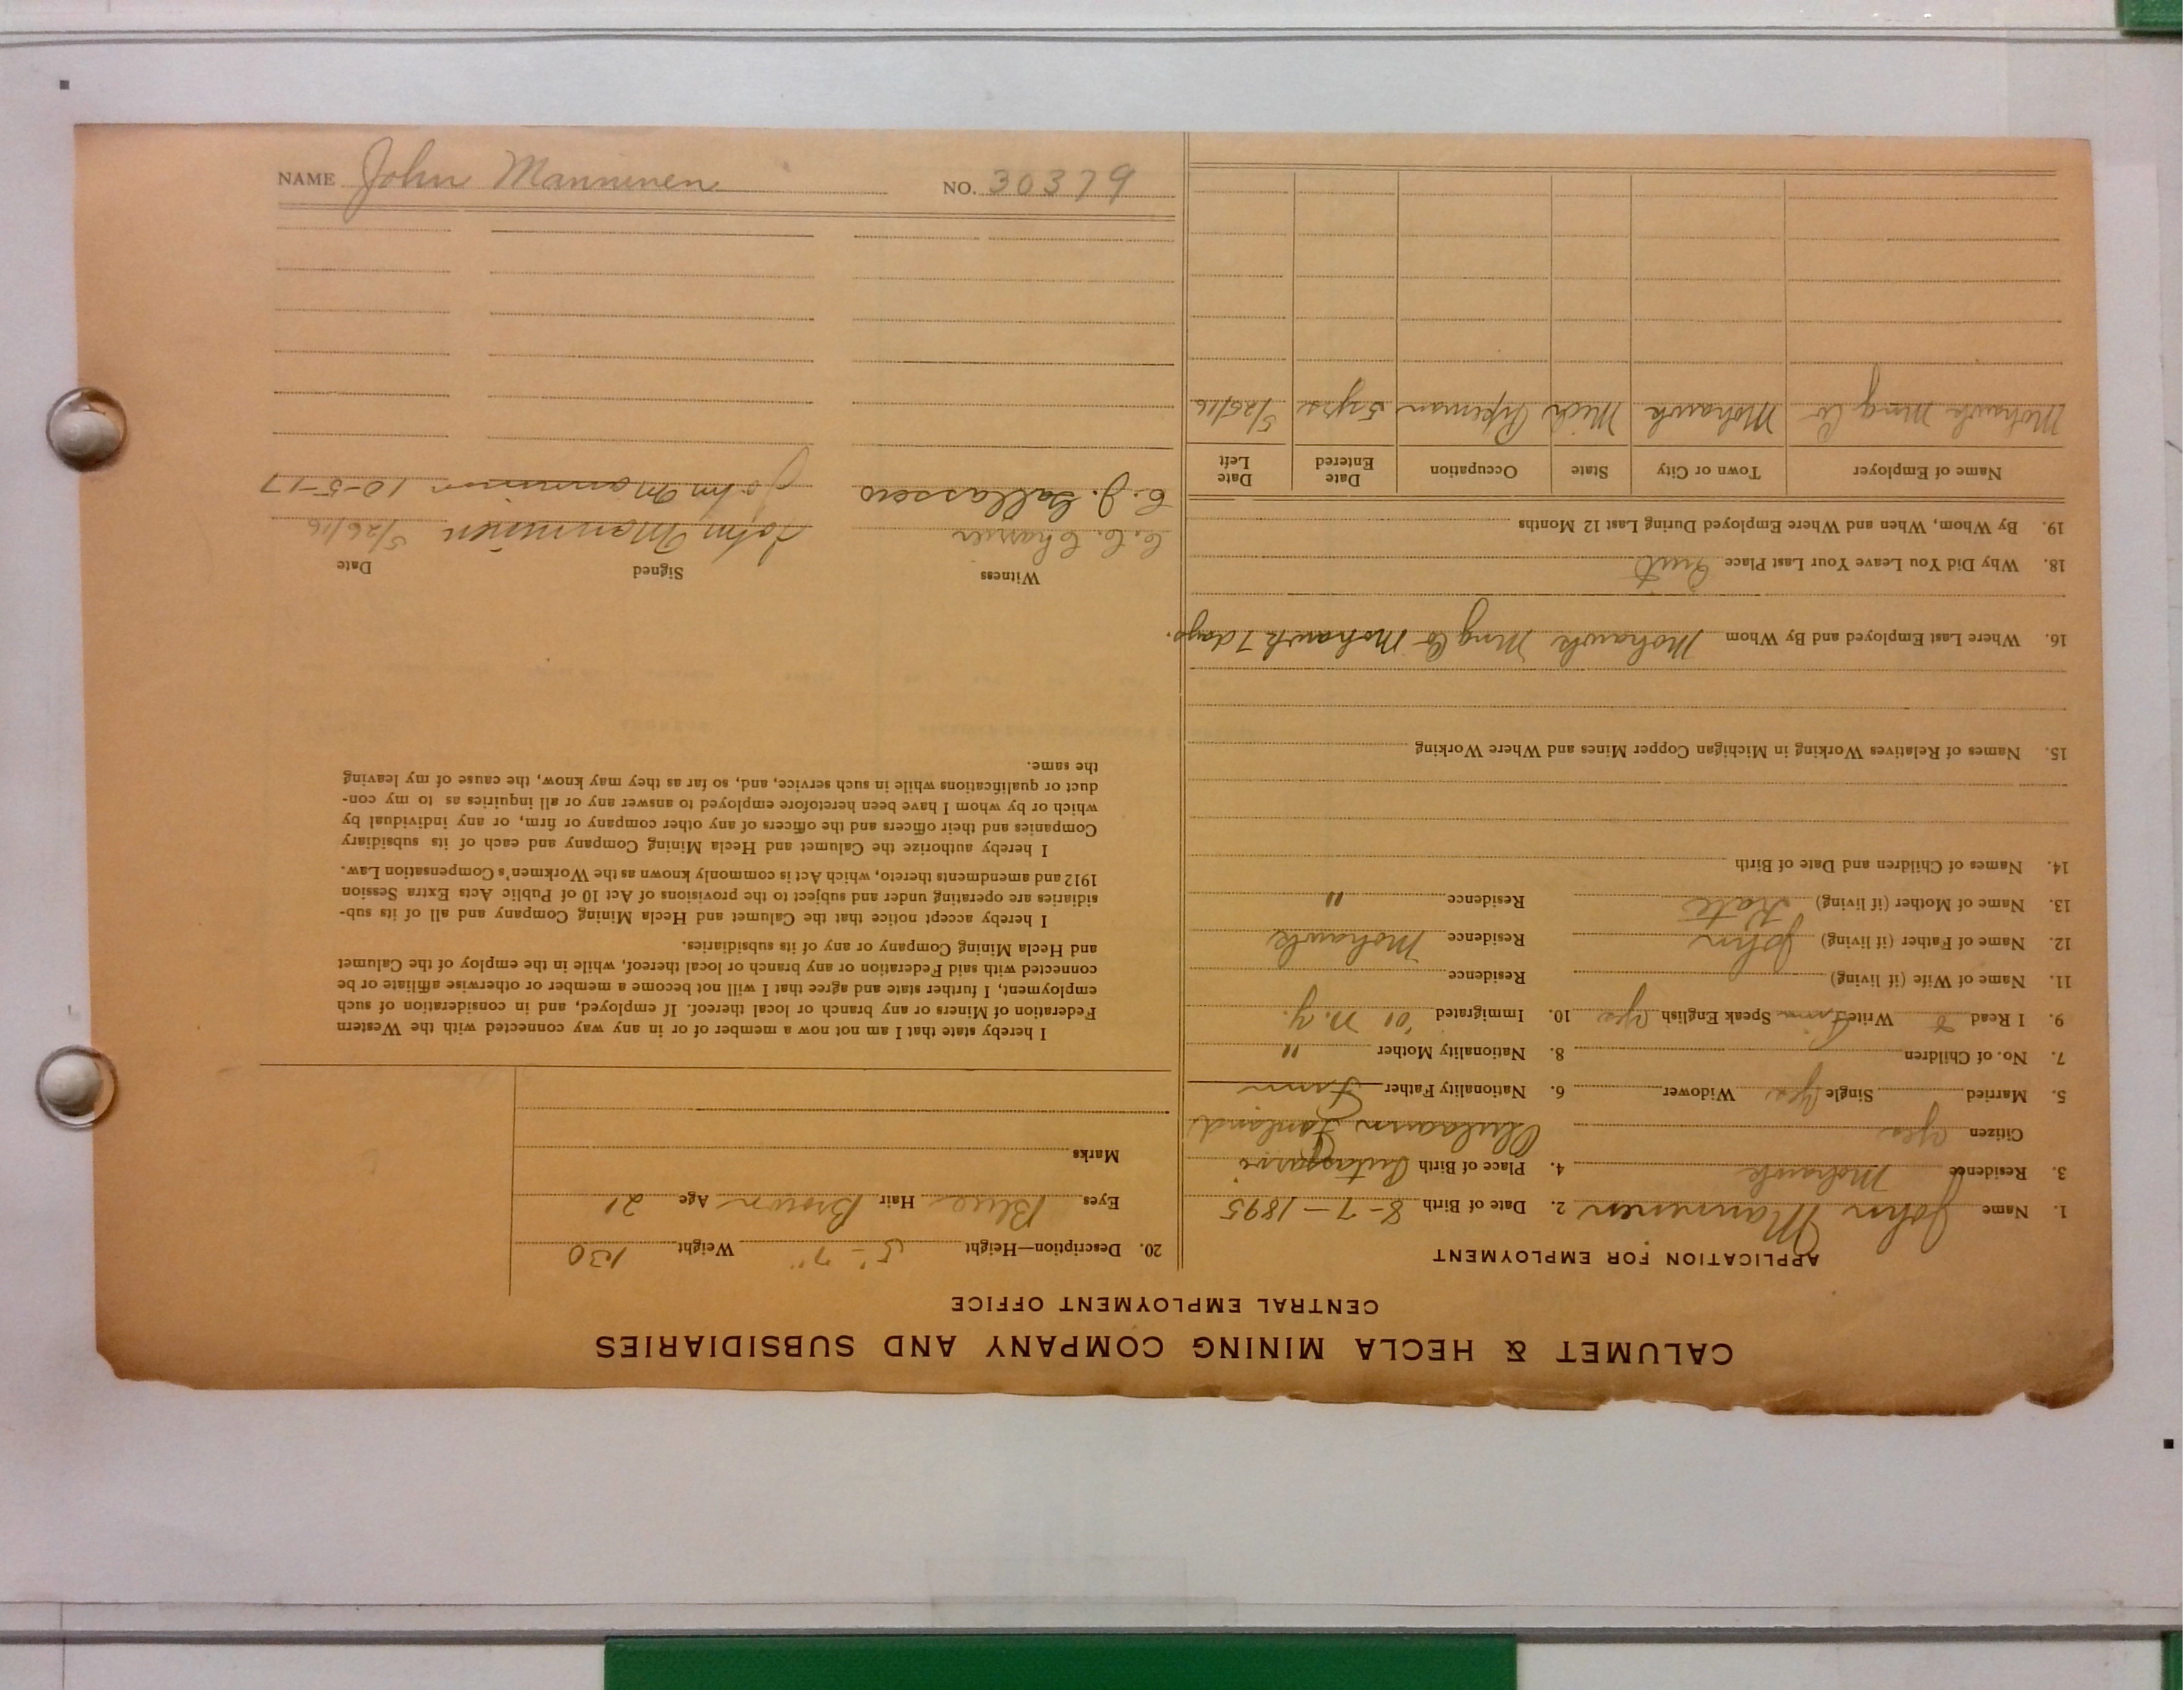 CALUMET & HECLA MINING COMPANY AND SUBSIDIARIES
CENTRAL EMPLOYMENT OFFICE
APPLICATION FOR EMPLOYMENT
1. Name John Manninen 2. Date of Birth 8-7-1895
3. Residence Mohawk 4. Place of Birth
Citizen Yes Finland
5. Married Single Yes Widower 6. Nationality Father Finn
7. No. of Children 8. Nationality Mother "
9. I Read & Write Finn Speak English Yes 10. Immigrated '01 N.Y.
11. Name of Wife (if living) Residence
12. Name of Father (if living) John Residence Mohawk
13. Name of Mother (if living) Kate Residence "
14. Names of Children and Date of Birth
15. Names of Relatives Working in Michigan Copper Mines and Where Working
16. Where Last Employed and By Whom Mohawk Mng Co Mohawk 7 days.
18. Why Did You Leave Your Last Place Quit
19. By Whom, When and Where Employed During Last 12 Months
Name of Employer Town or City State Occupation Date Entered Date Left
Mohawk Mng Co Mohawk Mich Pipeman 5 yrs 5/25/16
20. Description—Height 5'-7" Weight 130
Eyes Blue Hair Brown Age 21
Marks
I hereby state that I am not now a member of or in any way connected with the Western
Federation of Miners or any branch or local thereof. If employed, and in consideration of such
employment, I further state and agree that I will not become a member or otherwise affiliate or be
connected with said Federation or any branch or local thereof, while in the employ of the Calumet
and Hecla Mining Company or any of its subsidiaries.
I hereby accept notice that the Calumet and Hecla Mining Company and all of its sub-
sidiaries are operating under and subject to the provisions of Act 10 of Public Acts Extra Session
1912 and amendments thereto, which Act is commonly known as the Workmen's Compensation Law.
I hereby authorize the Calumet and Hecla Mining Company and each of its subsidiary
Companies and their officers and the officers of any other company or firm, or any individual by
which or by whom I have been heretofore employed to answer any or all inquiries as to my con-
duct or qualifications while in such service, and, so far as they may know, the cause of my leaving
the same.
Witness Signed Date
C. C. John Manninen 5/26/16
C. J. John Manninen 10-5-17
NAME John Manninen NO. 30379